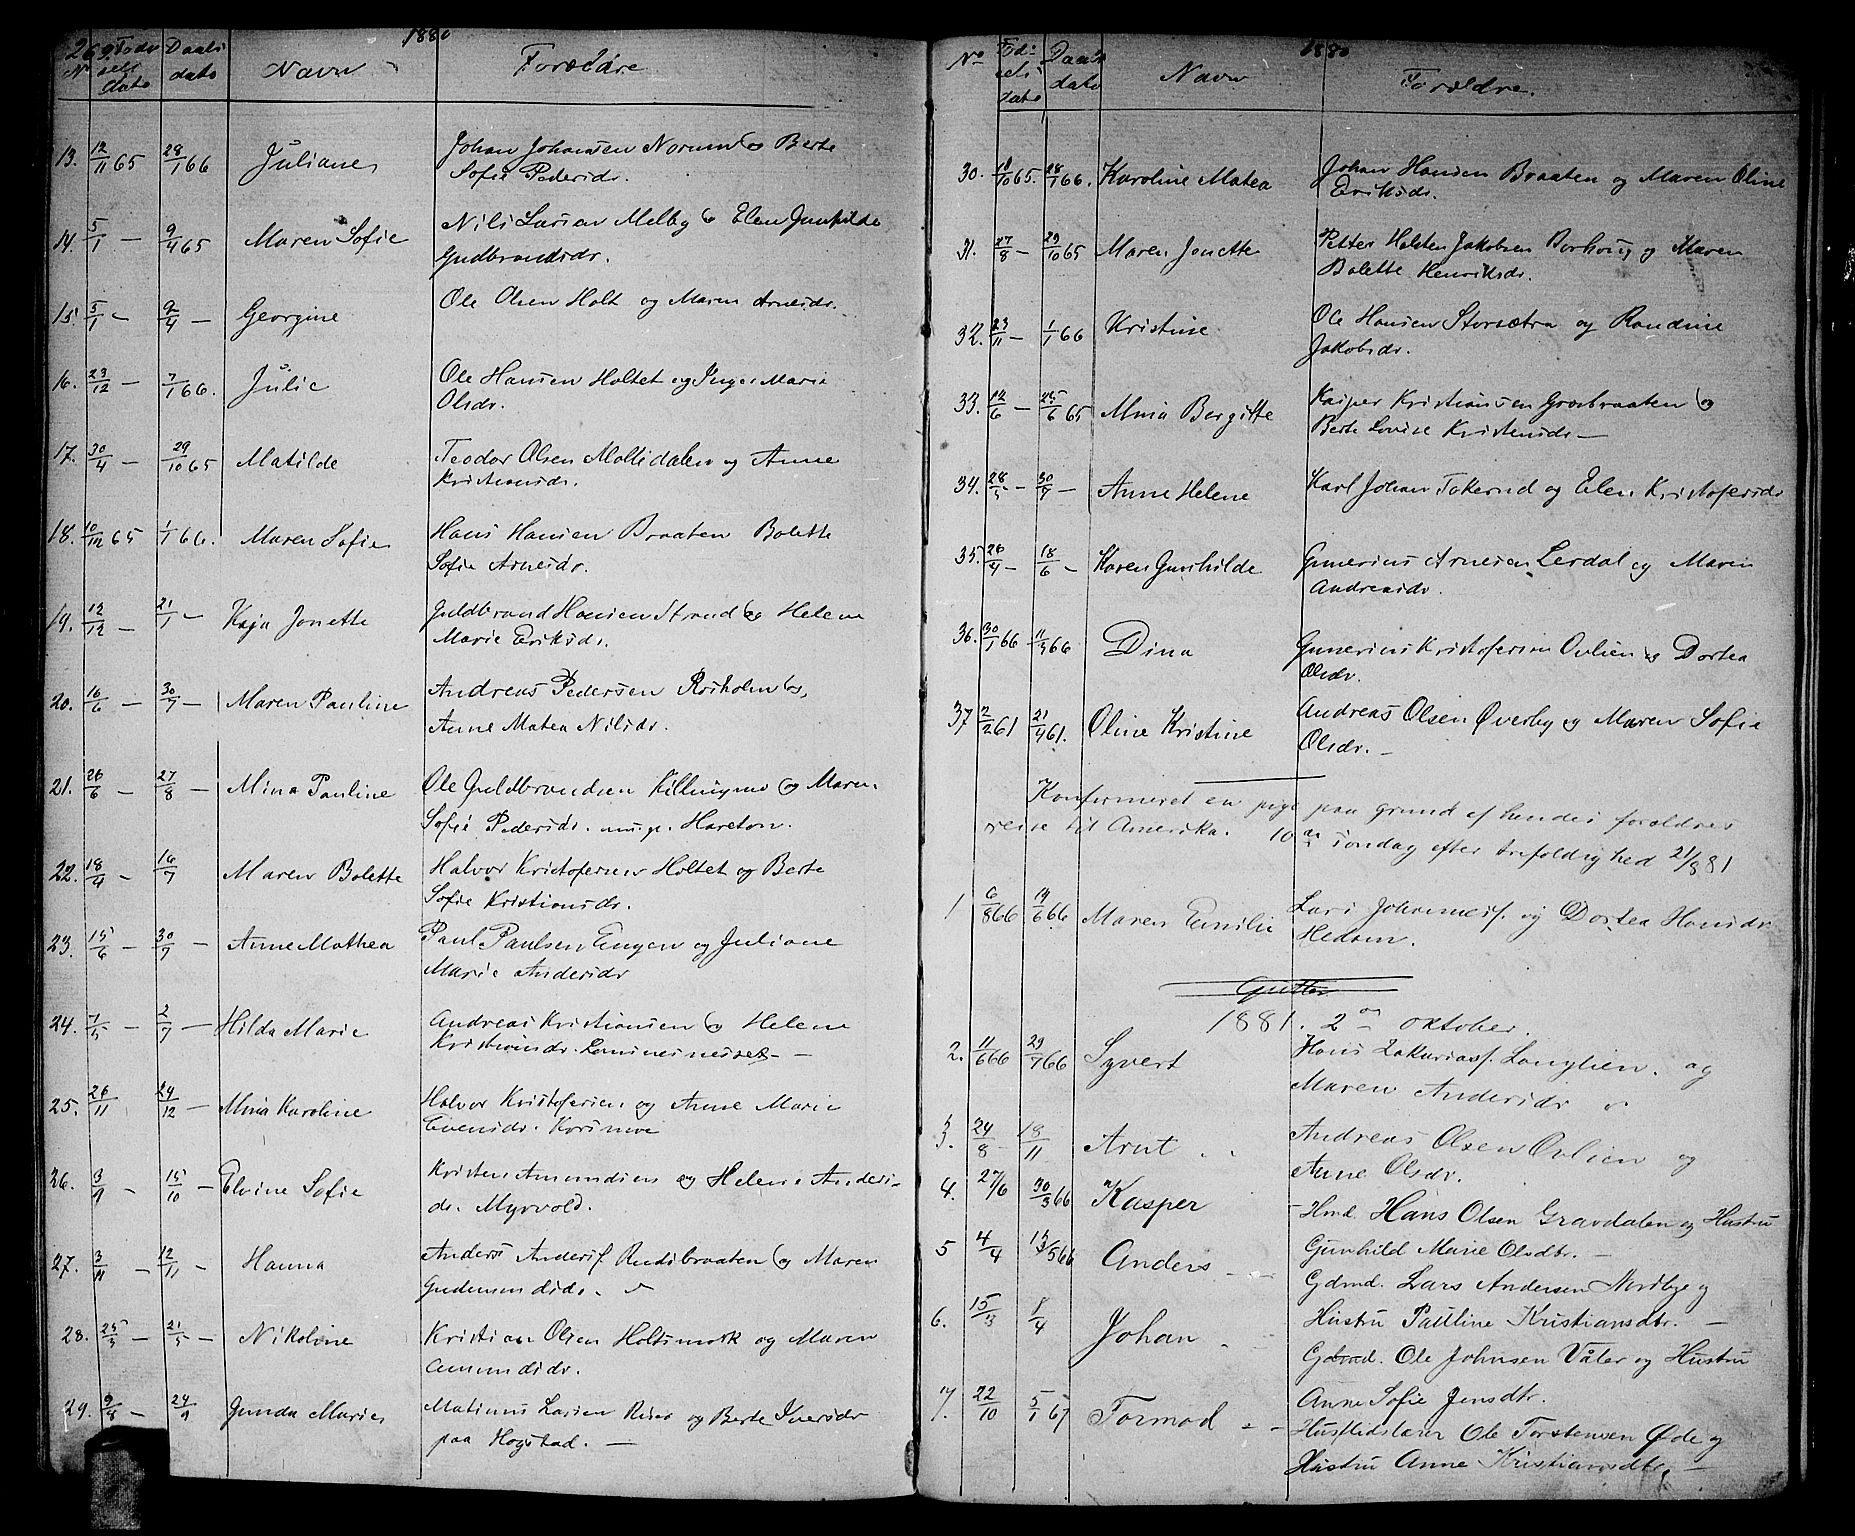 269.
1880
No Fødselsdato Daabsdato Navn Forældre
13. 12/11 65 28/1 66 Juliane Johan Johansen Norum og Berte
Sofie Pedersdr.
14. 5/1 — 9/4 65 Maren Sofie Nils Larsen Melby og Elen Gunhilde
Gudbrandsdr.
15. 5/1 — 9/4 — Georgine Ole Olsen Holt og Maren Arnesdr.
16. 23/12 — 7/1 66. Julie Ole Hansen Holtet og Inger Marie
Olsdr.
17. 30/4 — 29/10 65 Matilde Teodor Olsen Mollisdalen og Anne
Kristiansdr.
18. 10/12 65 1/1 66. Maren Sofie Hans Hansen Braaten Bolette
Sofie Arnesdr.
19. 12/12 — 21/1 — Kaja Jonette Guldbrand Hansen Strand og Helene
Marie Eriksdr.
20. 16/6 — 30/7 — Maren Pauline Andreas Pedersen Rosholm og
Anne Matea Nilsdr.
21. 26/6 — 27/8 — Mina Pauline Ole Guldbrandsen Killingmo og Maren
Sofie Pedersdr.
22. 18/4 — 16/7 Maren Bolette Halvor Kristofersen Holtet og Berte
Sofie Kristiansdr.
23. 15/6 — 30/7 — Anne Mathea Paul Paulsen Engen og Juliane
Marie Andersdr
24. 7/5 — 2/7 — Hilda Marie Andreas Kristiansen og Helene
Kristiansdr.
25. 26/11 24/12 — Mina Karoline Halvor Kristofersen og Anne Marie
Evensdr. Korsmoe
26. 3/9 — 15/10 — Elvine Sofie Kristen Amundsen og Helene Anders-
dr. Myrvold.
27. 3/11 — 12/11 — Hanna Anders Andersf. Rudsbraaten og Maren
Gudmundsdr.
28. 25/3 — 21/5 — Nikoline Kristian Olsen Holtsmark og Maren
Amundsdr.
29. 9/8 — 24/9 Gunda Marie Matinus Larsen Riser og Berte Iversdr
paa Hogstad. —
1880
No Fødselsdato Daabsdato Navn Forældre.
30. 18/10 65. 28/1 66. Karoline Matea Johan Hansen Braaten og Maren Oline
Eriksdr.
31. 27/8 — 29/10 65 Maren Jonette Petter Holsten Jakobsen Borhoug og Maren
Bolette Henriksdr.
32. 23/11 — 1/1 66 Kristine Ole Hansen Storsætra og Randine
Jakobsdr.
33. 12/6 — 25/6 65 Mina Bergitte Kasper Kristiansen Grosbraaten og
Berte Lovise Kristensdr —
34. 28/5 — 30/7 — Anne Helene Karl Johan Takerud og Elen Kristofersdr
35. 26/4 — 18/6 — Karen Gunhilde Gunerius Arnesen Lerdal og Maren
Andreasdr.
36. 30/1 66 11/3 66 Dina Gunerius Kristofersen Ovlien og Dortea
Olsdr.
37 2/2 61 21/4 61. Oline Kristine Andreas Olsen Øverby og Maren Sofie
Olsdr. —
Konfirmeret en pige paa grund af hendes forældres
reise til Amerika. 10de søndag efter trefoldighed 21/8 81
1 6/8 66 19/6 66 Maren Emilie Lars Johannesf. og Dortea Hansdr
Hedom.
Gutter
1881. 2den oktober.
2. 11/6 66 29/7 66 Syvert Hans Zakariasf. Langlien. og
Maren Andersdr
3. 24/8 — 18/11 Arnt Andreas Olsen Ovlien og
Anne Olsdr.
4. 27/6 30/3 66 Kasper Hmd. Hans Olsen Gravdalen og Hustru
Gunhild Marie Olsdtr. —
5 4/4 13/5 66 Anders Gdmd. Lars Andersen Nordbye og
Hustru Pauline Kristiansdtr. —
6. 15/3 1/4 Johan Gdmd. Ole Johnsen Våler og Hustru
Anne Sofie Jensdtr.
7. 22/10 5/1 67 Tormod Husflidslærer Ole Torstensen Øde og
Hustru Anne Kristiansdtr. —